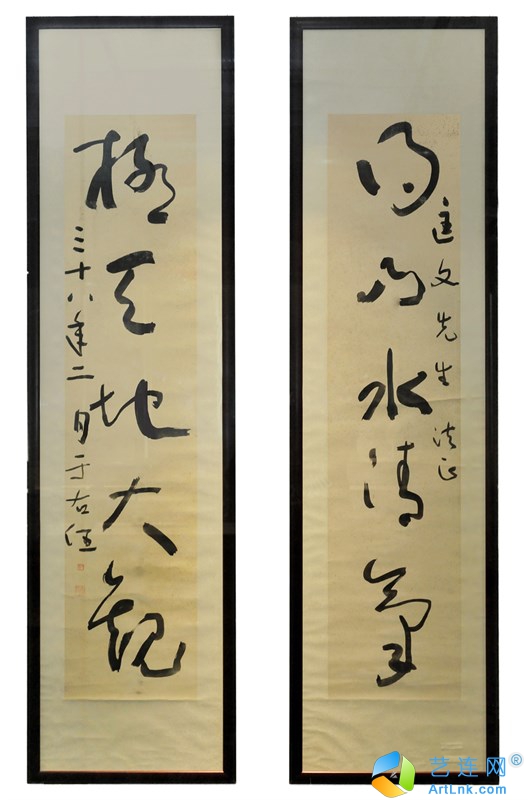 得山水清氣
匡文先生 法正
極天地大觀
三十八年二月于右任
艺连网®
ArtLnk.com